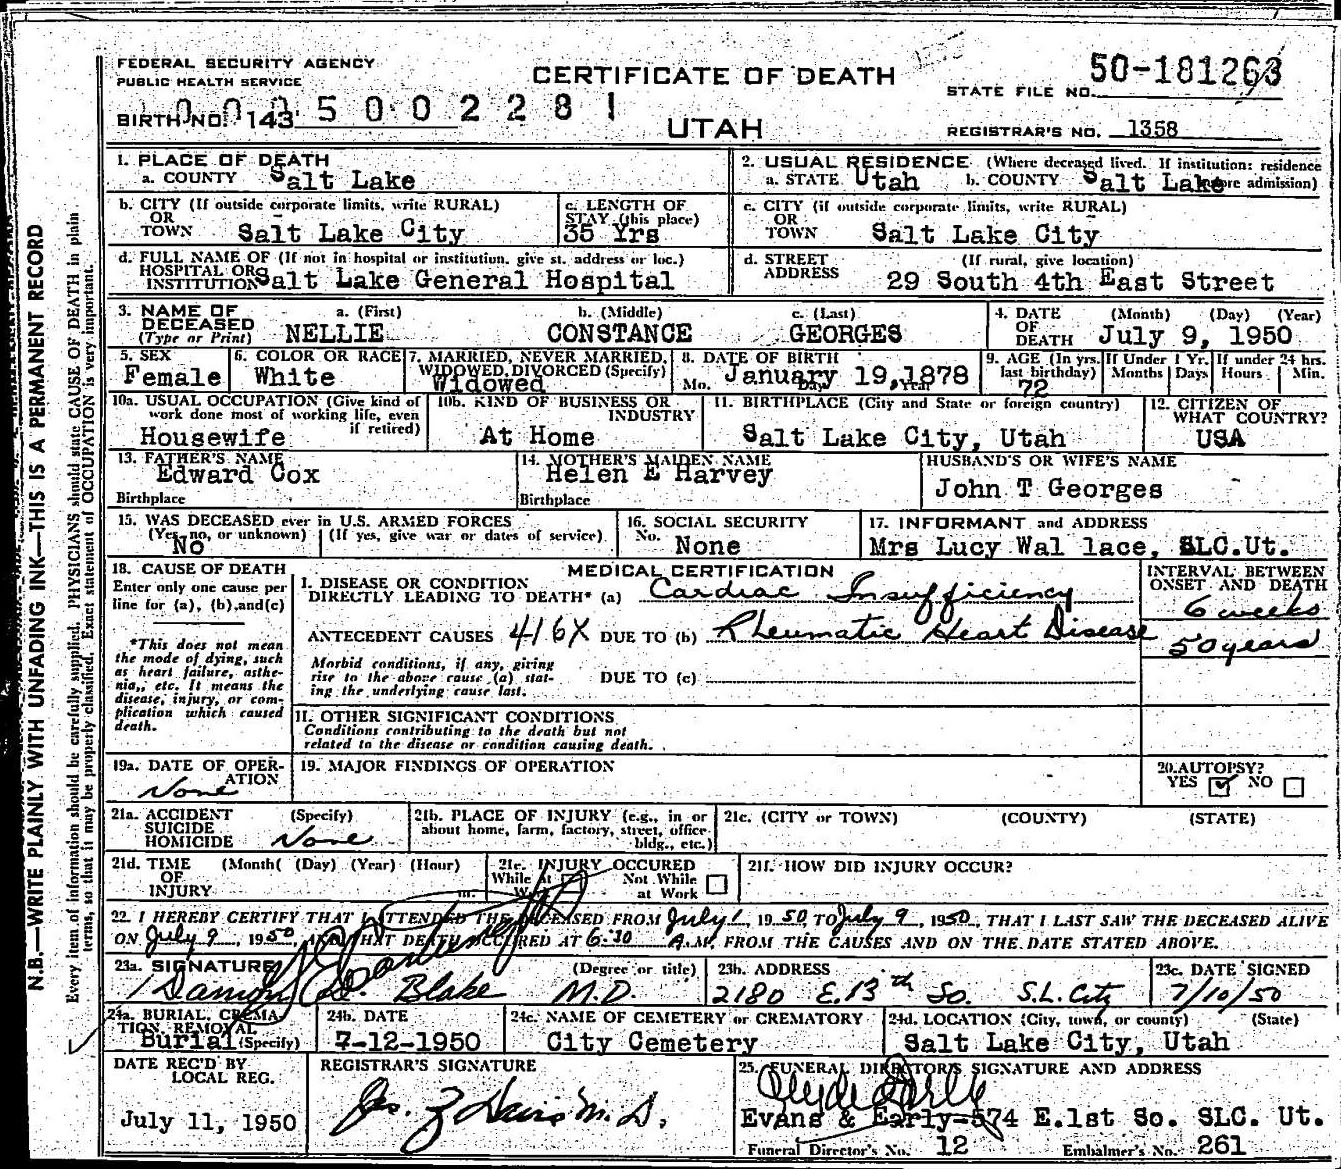 FEDERAL SECURITY AGENCY
PUBLIC HEALTH SERVICE
CERTIFICATE OF DEATH
UTAH
50-181263
STATE FILE NO.
BIRTH NO. 143
0005002281
REGISTRAR'S NO. 1358
N.B.—WRITE PLAINLY WITH UNFADING INK—THIS IS A PERMANENT RECORD
Every item of information should be carefully supplied. PHYSICIANS should state CAUSE OF DEATH in plain
terms, so that it may be properly classified. Exact statement of OCCUPATION is very important.
1. PLACE OF DEATH
a. COUNTY Salt Lake
2. USUAL RESIDENCE (Where deceased lived. If institution: residence
a. STATE Utah b. COUNTY Salt Lake before admission)
b. CITY (If outside corporate limits, write RURAL)
OR
TOWN Salt Lake City
c. LENGTH OF
STAY (this place)
35 Yrs
c. CITY (if outside corporate limits, write RURAL)
OR
TOWN Salt Lake City
d. FULL NAME OF (If not in hospital or institution, give st. address or loc.)
HOSPITAL OR
INSTITUTION Salt Lake General Hospital
d. STREET (If rural, give location)
ADDRESS 29 South 4th East Street
3. NAME OF DECEASED
(Type or Print)
a. (First) NELLIE
b. (Middle) CONSTANCE
c. (Last) GEORGES
4. DATE OF DEATH (Month) (Day) (Year)
July 9, 1950
5. SEX
Female
6. COLOR OR RACE
White
7. MARRIED, NEVER MARRIED,
WIDOWED, DIVORCED (Specify)
Widowed
8. DATE OF BIRTH
Mo. Day Year
January 19, 1878
9. AGE (In yrs.
last birthday)
72
If Under 1 Yr.
Months Days
If under 24 hrs.
Hours Min.
10a. USUAL OCCUPATION (Give kind of
work done most of working life, even
if retired)
Housewife
10b. KIND OF BUSINESS OR
INDUSTRY
At Home
11. BIRTHPLACE (City and State or foreign country)
Salt Lake City, Utah
12. CITIZEN OF
WHAT COUNTRY?
USA
13. FATHER'S NAME
Edward Cox
Birthplace
14. MOTHER'S MAIDEN NAME
Helen E Harvey
Birthplace
HUSBAND'S OR WIFE'S NAME
John T Georges
15. WAS DECEASED ever in U.S. ARMED FORCES
(Yes, no, or unknown) (If yes, give war or dates of service)
No
16. SOCIAL SECURITY
No. None
17. INFORMANT and ADDRESS
Mrs Lucy Wal lace, SLC.Ut.
18. CAUSE OF DEATH
Enter only one cause per
line for (a), (b), and (c)
*This does not mean
the mode of dying, such
as heart failure, asthe-
nia, etc. It means the
disease, injury, or com-
plication which caused
death.
MEDICAL CERTIFICATION
I. DISEASE OR CONDITION
DIRECTLY LEADING TO DEATH* (a) Cardiac Insufficiency
ANTECEDENT CAUSES 416X DUE TO (b) Rheumatic Heart Disease
Morbid conditions, if any, giving
rise to the above cause (a) stat-
ing the underlying cause last.
DUE TO (c)
II. OTHER SIGNIFICANT CONDITIONS
Conditions contributing to the death but not
related to the disease or condition causing death.
INTERVAL BETWEEN
ONSET AND DEATH
6 weeks
50 years
19a. DATE OF OPER-
ATION
None
19. MAJOR FINDINGS OF OPERATION
20. AUTOPSY?
YES NO
21a. ACCIDENT (Specify)
SUICIDE
HOMICIDE None
21b. PLACE OF INJURY (e.g., in or
about home, farm, factory, street, office
bldg., etc.)
21c. (CITY or TOWN) (COUNTY) (STATE)
21d. TIME (Month) (Day) (Year) (Hour)
OF
INJURY m.
21e. INJURY OCCURED
While at Work Not While at Work
21f. HOW DID INJURY OCCUR?
22. I HEREBY CERTIFY THAT I ATTENDED THE DECEASED FROM July 1, 1950, TO July 9, 1950, THAT I LAST SAW THE DECEASED ALIVE
ON July 9, 1950, AND THAT DEATH OCCURRED AT 6:30 A.M, FROM THE CAUSES AND ON THE DATE STATED ABOVE.
23a. SIGNATURE (Degree or title)
Blake M.D.
23b. ADDRESS
2180 E. 13th So. S.L. City
23c. DATE SIGNED
7/10/50
24a. BURIAL, CREMA-
TION, REMOVAL
Burial (Specify)
24b. DATE
7-12-1950
24c. NAME OF CEMETERY or CREMATORY
City Cemetery
24d. LOCATION (City, town, or county) (State)
Salt Lake City, Utah
DATE REC'D BY
LOCAL REG.
July 11, 1950
REGISTRAR'S SIGNATURE
M.D.
25. FUNERAL DIRECTOR'S SIGNATURE AND ADDRESS
Evans & Early-574 E.1st So. SLC. Ut.
Funeral Director's No. 12 Embalmer's No. 261